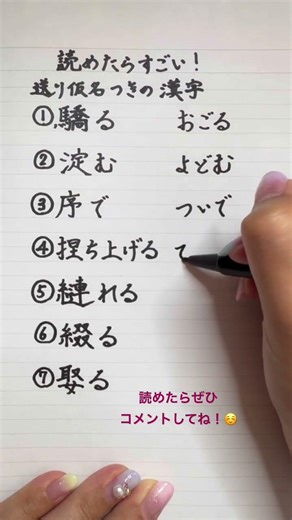 読めたらすごい！
送り仮名つきの漢字
①驕る おごる
②淀む よどむ
③序で ついで
④捏ち上げる で
⑤縺れる
⑥綴る
⑦娶る
読めたらぜひ
コメントしてね！☺️